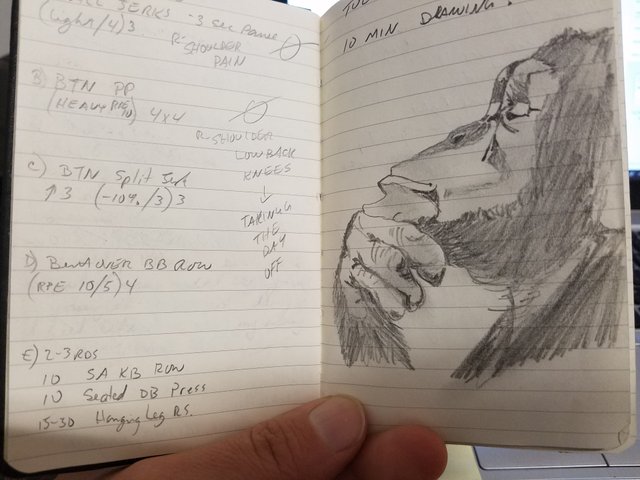 JERKS - 3 sec Pause
(Light/4)3
R- SHOULDER
PAIN
B) BTN PP
(HEAVY RPE
10) 4x4
R- SHOULDER
LOW BACK
KNEES
↓
TAKING
THE
DAY
OFF
C) BTN Split Jerk
↑3 (-10%/3)3
D) Bent OVER BB ROW
(RPE 10/5)4
E) 2-3 RDS
10 SA KB Row
10 Seated DB Press
15-30 Hanging Leg RS.
10 MIN DRAWING.